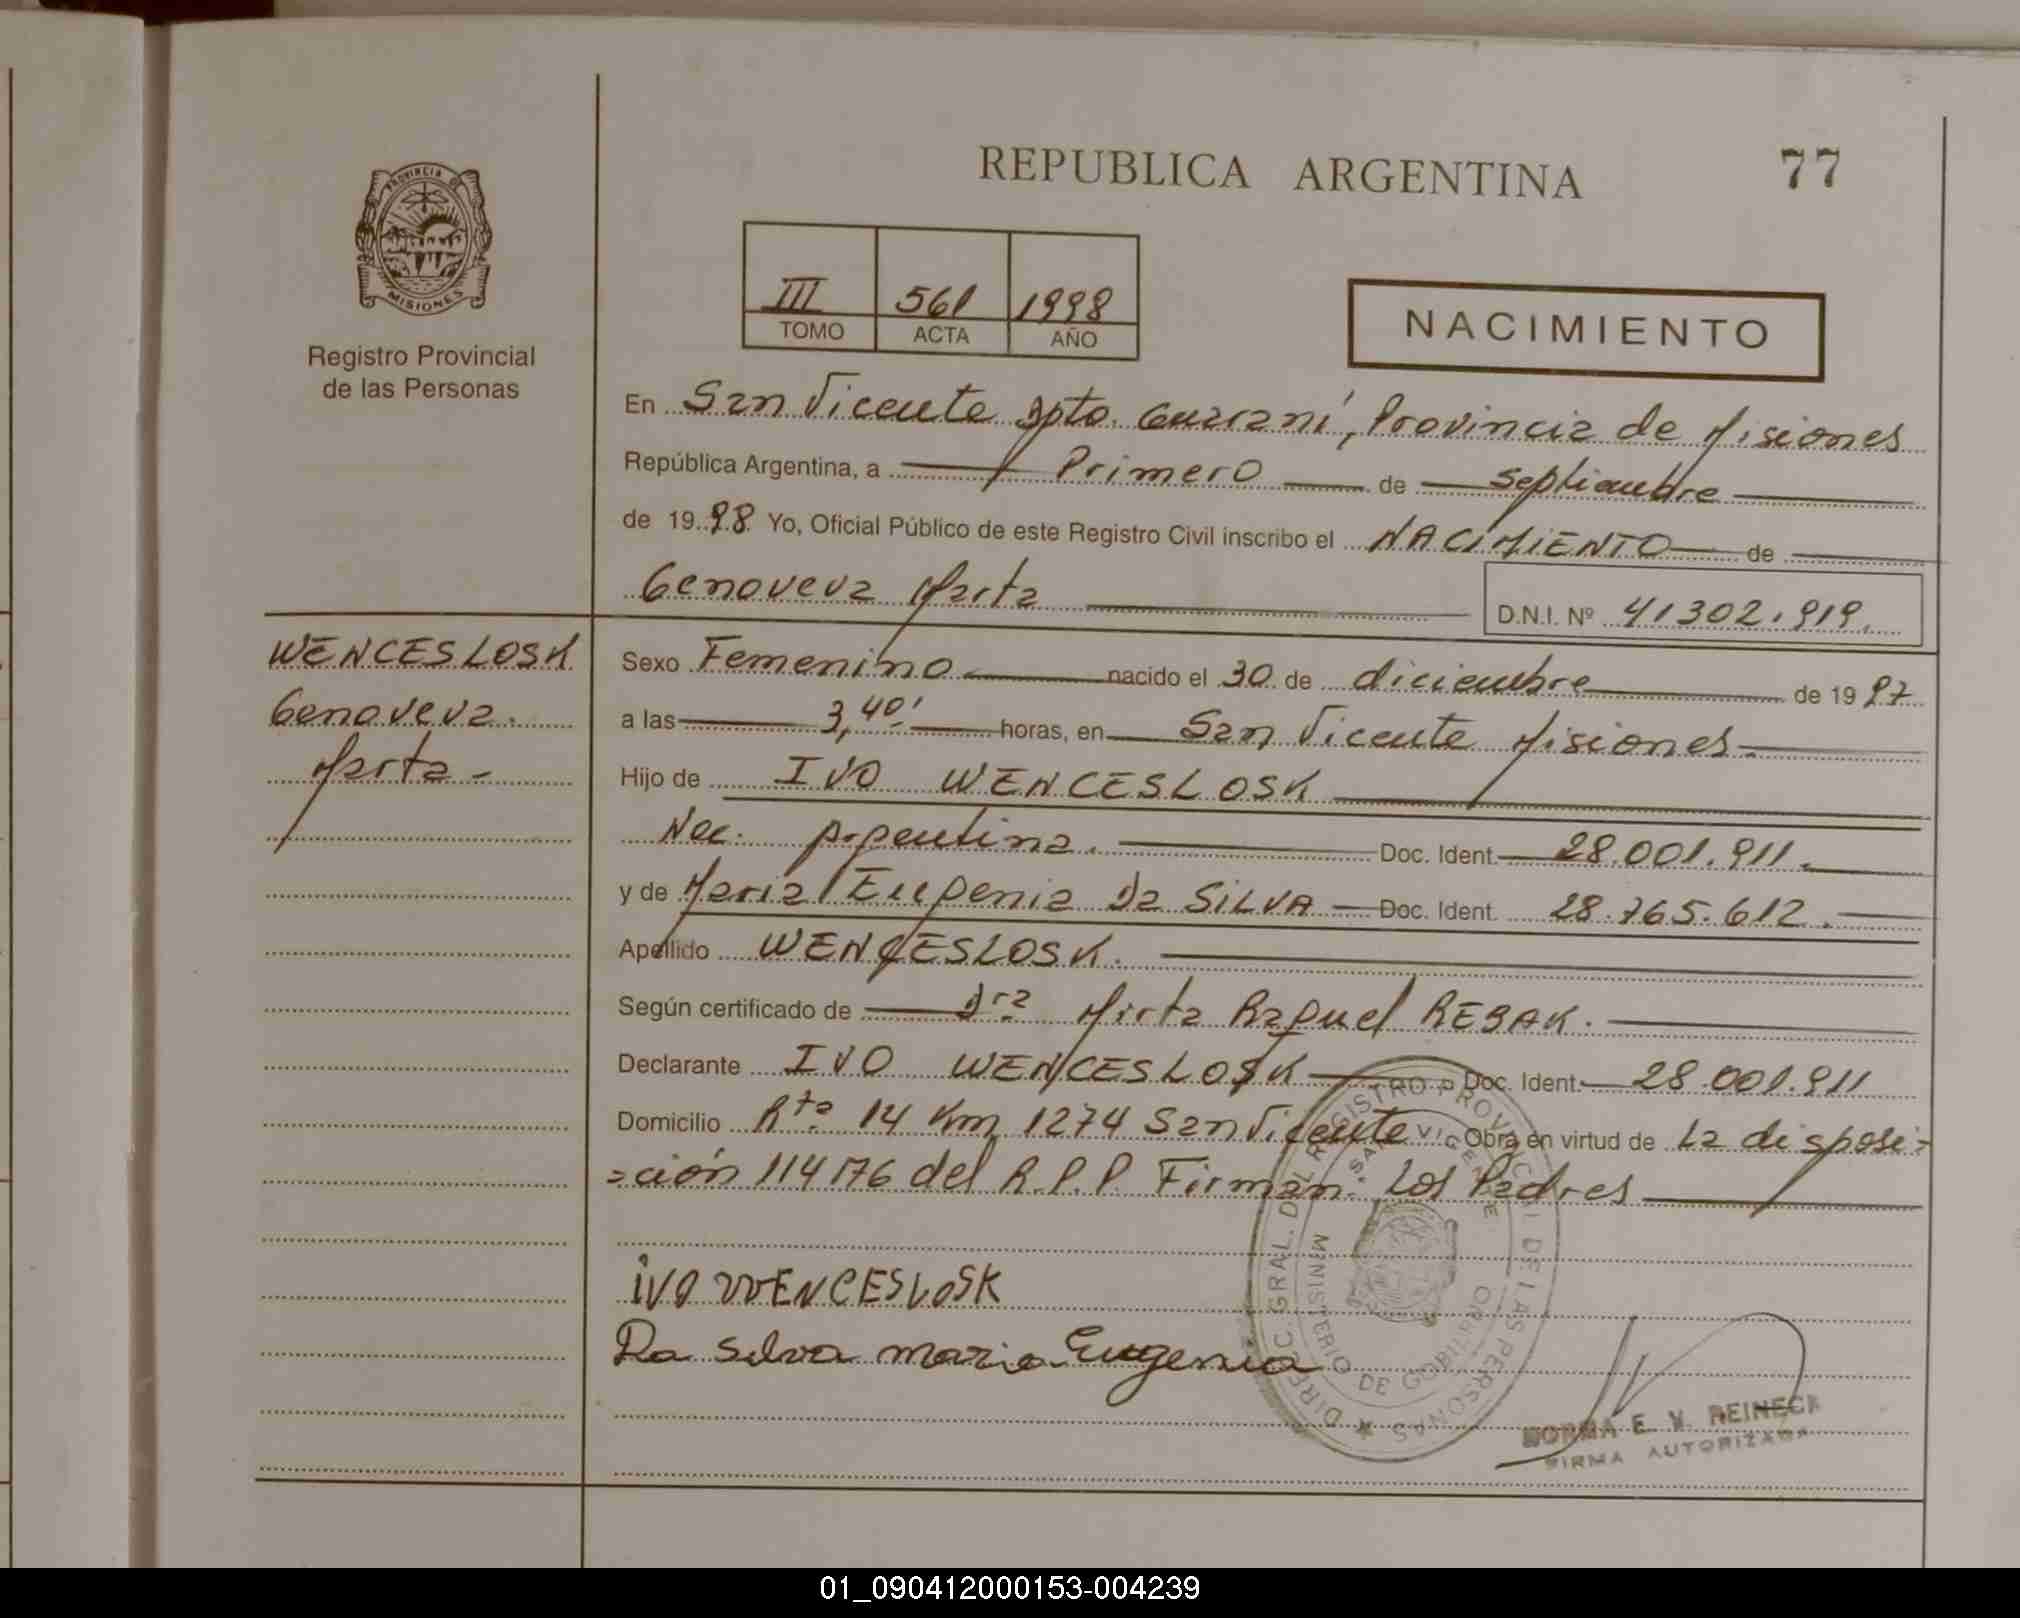 PROVINCIA DE
MISIONES
Registro Provincial
de las Personas
REPUBLICA ARGENTINA
77
III 561 1998
TOMO ACTA AÑO
NACIMIENTO
En San Vicente Dpto. Guaraní, Provincia de Misiones
República Argentina, a Primero de septiembre
de 1998 Yo, Oficial Público de este Registro Civil inscribo el NACIMIENTO de
Genoveva Marta
D.N.I. Nº 41302.919.
WENCESLOSK
Genoveva
Marta -
Sexo Femenino nacido el 30 de diciembre de 1997
a las 3,40' horas, en San Vicente Misiones
Hijo de IVO WENCESLOSK
Nac. Argentina. Doc. Ident. 28.001.911.
y de Maria Eugenia Da SILVA Doc. Ident. 28.765.612.
Apellido WENCESLOSK.
Según certificado de Dra Mirta Raquel REBAK.
Declarante IVO WENCESLOSK Doc. Ident. 28.001.911
Domicilio Rta 14 Km 1274 San Vicente Obra en virtud de La disposi=
=ción 114/76 del R.P.P. Firman: Los Padres
iVO WENCESLOSK
Da Silva maria Eugenia
DIREC. GRAL. DEL REGISTRO PROVINCIAL DE LAS PERSONAS
SAN VICENTE
MINISTERIO DE GOBIERNO
NORMA E. V. REINECK
FIRMA AUTORIZADA
01_090412000153-004239